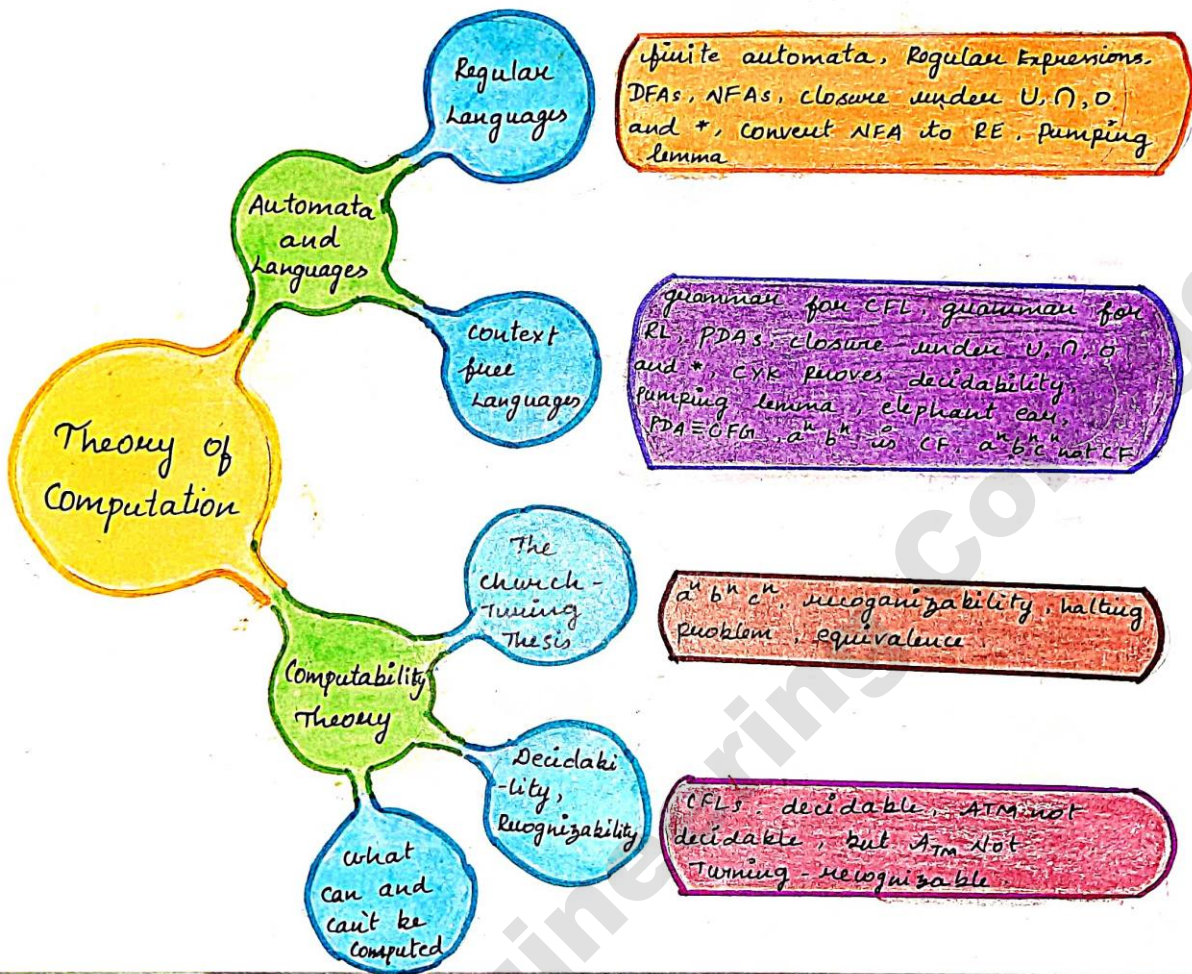 Theory of
Computation
Automata
and
Languages
Regular
Languages
finite automata, Regular Expressions.
DFAs, NFAs, closure under U, ∩, o
and *, convert NFA to RE, Pumping
lemma
Context
free
Languages
grammar for CFL, grammar for
RL, PDAs, closure under U, ∩, o
and *, CYK proves decidability,
Pumping lemma, elephant ear,
PDA≡CFG, aⁿ bⁿ is CF, aⁿbⁿcⁿ not CF
Computability
Theory
The
Church-
Turing
Thesis
aⁿ bⁿ cⁿ, recoganizability, halting
problem, equivalence
Decidabi
-lity,
Recognizability
CFLs decidable, ATM not
decidable, but A_TM Not
Turning-recognizable
What
can and
can't be
Computed